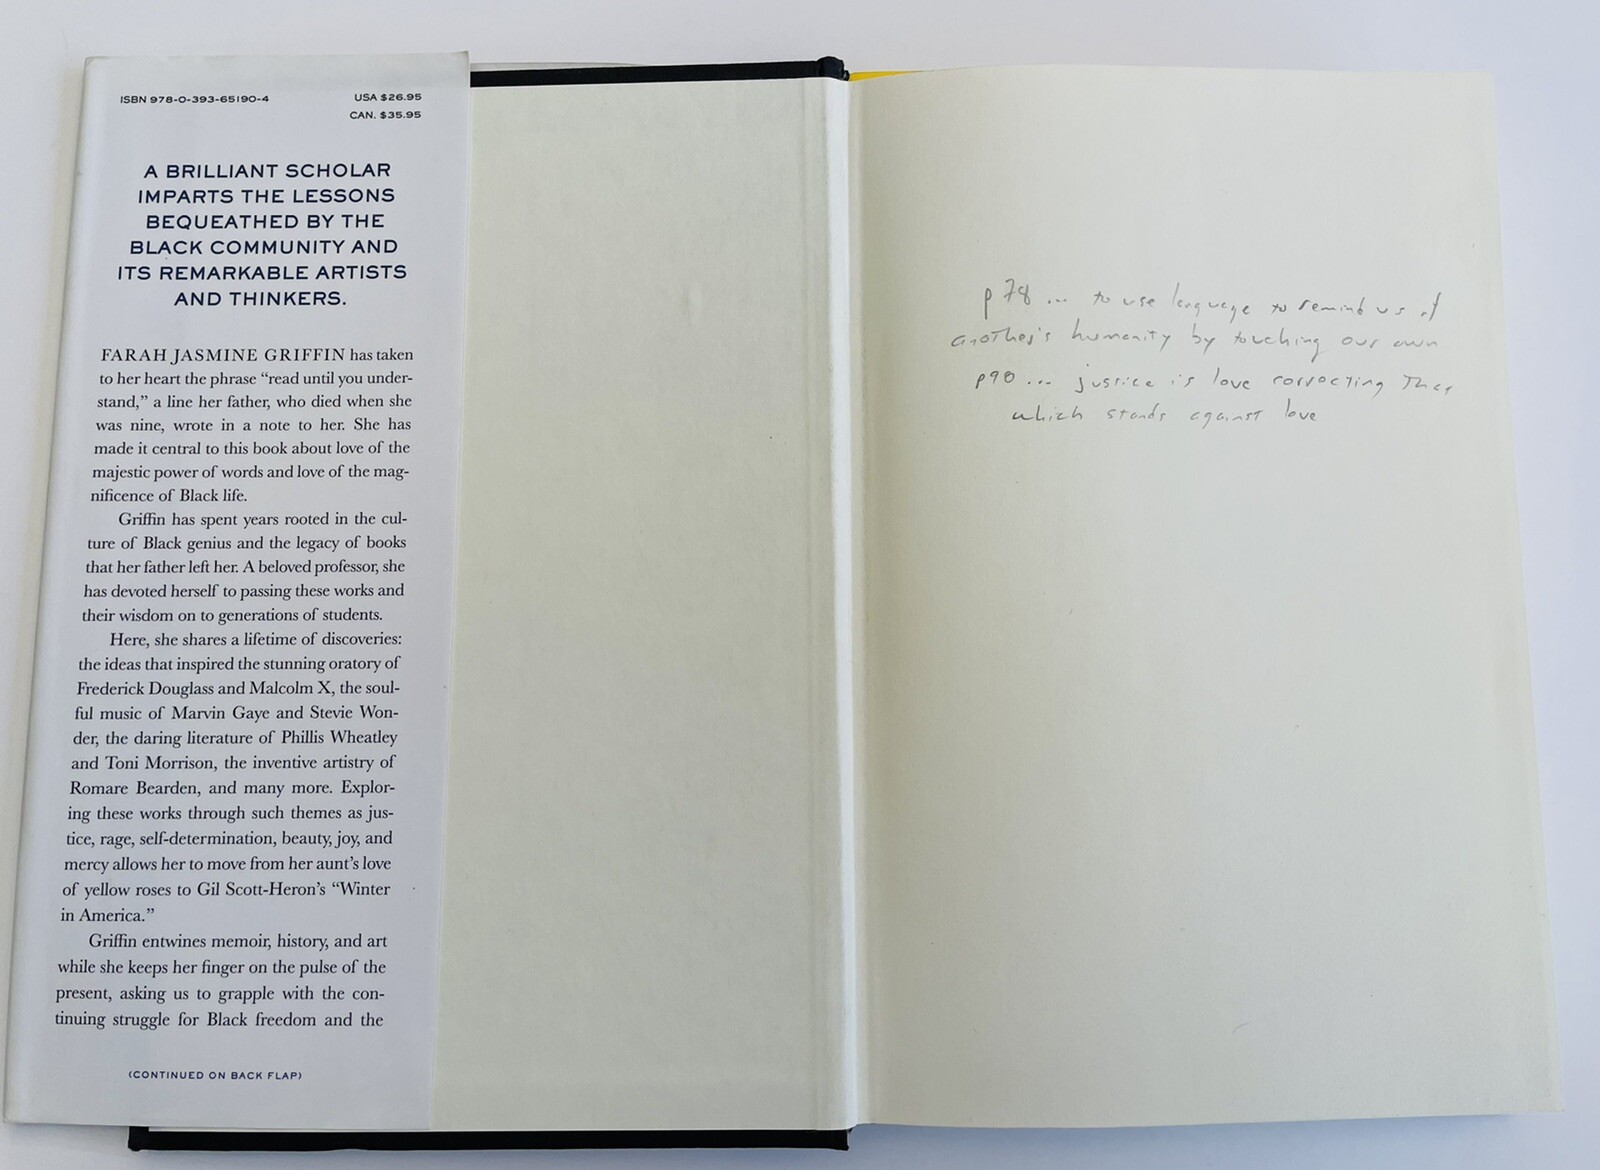 ISBN 978-0-393-65190-4
USA $26.95
CAN. $35.95
A BRILLIANT SCHOLAR
IMPARTS THE LESSONS
BEQUEATHED BY THE
BLACK COMMUNITY AND
ITS REMARKABLE ARTISTS
AND THINKERS.
FARAH JASMINE GRIFFIN has taken
to her heart the phrase “read until you under-
stand,” a line her father, who died when she
was nine, wrote in a note to her. She has
made it central to this book about love of the
majestic power of words and love of the mag-
nificence of Black life.
Griffin has spent years rooted in the cul-
ture of Black genius and the legacy of books
that her father left her. A beloved professor, she
has devoted herself to passing these works and
their wisdom on to generations of students.
Here, she shares a lifetime of discoveries:
the ideas that inspired the stunning oratory of
Frederick Douglass and Malcolm X, the soul-
ful music of Marvin Gaye and Stevie Won-
der, the daring literature of Phillis Wheatley
and Toni Morrison, the inventive artistry of
Romare Bearden, and many more. Explor-
ing these works through such themes as jus-
tice, rage, self-determination, beauty, joy, and
mercy allows her to move from her aunt’s love
of yellow roses to Gil Scott-Heron’s “Winter
in America.”
Griffin entwines memoir, history, and art
while she keeps her finger on the pulse of the
present, asking us to grapple with the con-
tinuing struggle for Black freedom and the
(CONTINUED ON BACK FLAP)
p 78 ... to use language to remind us of
another's humanity by touching our own
p90 ... justice is love correcting that
which stands against love